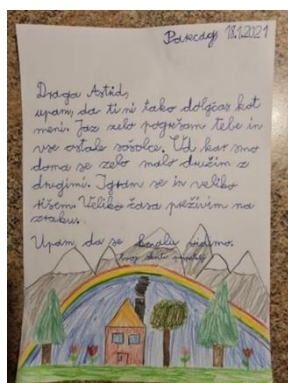 Parecag 18.1.2021
Draga Astrid,
upam, da ti ni tako dolgčas kot
meni. Jaz zelo pogrešam tebe in
vse ostale sošolce. Od kar smo
doma se zelo malo družim z
drugimi. Igram se in veliko
rišem. Veliko časa preživim na
zraku.
Upam, da se kmalu vidimo.